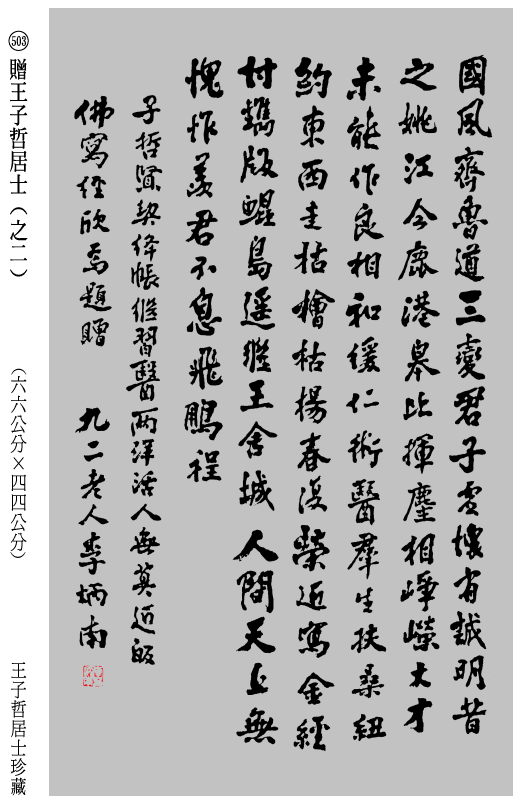 國風齊魯道三變君子虛懷有誠明昔
之姚江今鹿港皋比揮麈相崢嶸大才
未能作良相和緩仁術醫羣生扶桑紐
約東西走枯檜枯楊春復榮近寫金經
付鐫版鯤島遥繼王舍城人間天上無
愧怍羨君不息飛鵬程
子哲賢契絳帳繼習醫兩洋活人無莫近皈
佛寫經欣焉題贈 九二老人李炳南
503 贈王子哲居士（之二） （六六公分×四四公分） 王子哲居士珍藏